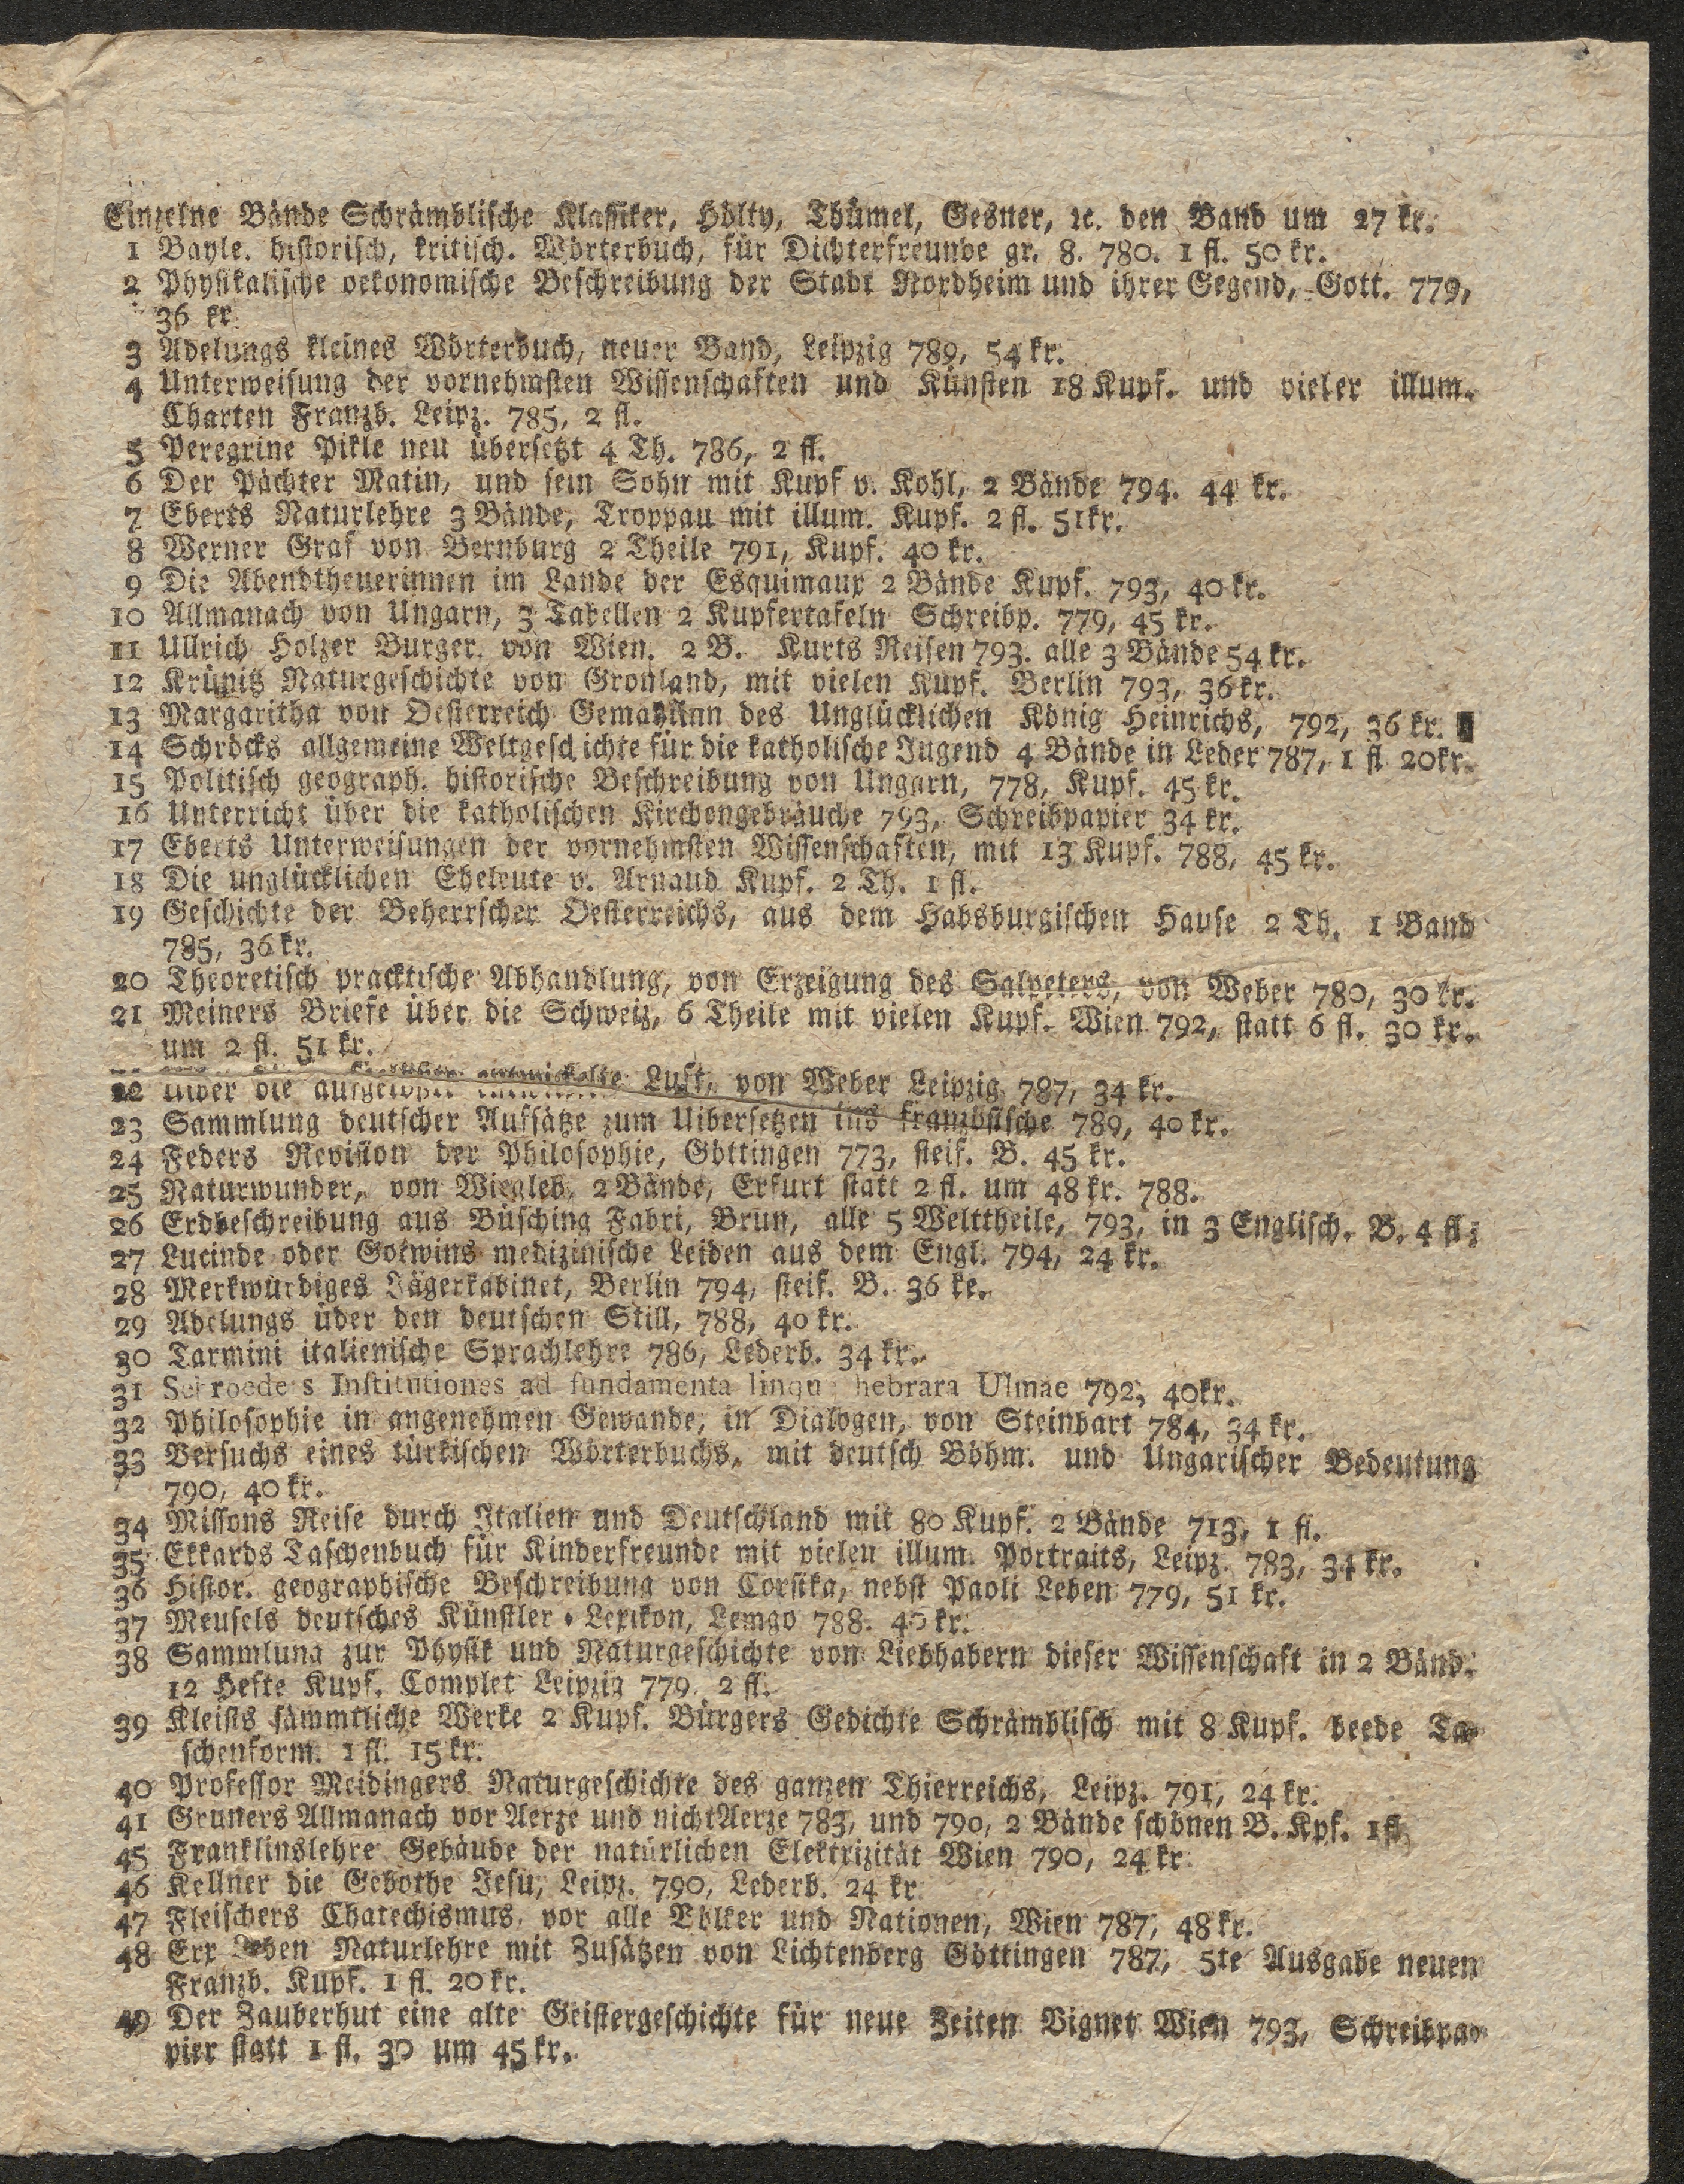 Einzelne Bände Schrämblische Klassiker, Hölty, Thümel, Gesner, ꝛc. den Band um 27 kr.
1 Bayle. historisch, kritisch. Wörterbuch, für Dichterfreunde gr. 8. 780. 1 fl. 50 kr.
2 Physikalische oekonomische Beschreibung der Stadt Nordheim und ihrer Gegend, Gött. 779,
36 kr.
3 Adelungs kleines Wörterbuch, neuer Band, Leipzig 789, 54 kr.
4 Unterweisung der vornehmsten Wissenschaften und Künsten 18 Kupf. und vieler illum.
Charten Franzb. Leipz. 785, 2 fl.
5 Peregrine Pikle neu übersetzt 4 Th. 786, 2 fl.
6 Der Pächter Matin, und sein Sohn mit Kupf v. Kohl, 2 Bände 794. 44 kr.
7 Eberts Naturlehre 3 Bände, Troppau mit illum. Kupf. 2 fl. 51kr.
8 Werner Graf von Bernburg 2 Theile 791, Kupf. 40 kr.
9 Die Abendtheuerinnen im Lande der Esquimaux 2 Bände Kupf. 793, 40 kr.
10 Allmanach von Ungarn, 3 Tabellen 2 Kupfertafeln Schreibp. 779, 45 kr.
11 Ullrich Holzer Burger. von Wien. 2 B. Kurts Reisen 793. alle 3 Bände 54 kr.
12 Krünitz Naturgeschichte von Gronland, mit vielen Kupf. Berlin 793, 36 kr.
13 Margaritha von Oesterreich Gemahlinn des Unglücklichen König Heinrichs, 792, 36 kr.
14 Schröcks allgemeine Weltgeschichte für die katholische Jugend 4 Bände in Leder 787, 1 fl 20kr.
15 Politisch geograph. historische Beschreibung von Ungarn, 778, Kupf. 45 kr.
16 Unterricht über die katholischen Kirchengebräuche 793, Schreibpapier 34 kr.
17 Eberts Unterweisungen der vornehmsten Wissenschaften, mit 13 Kupf. 788, 45 kr.
18 Die unglücklichen Eheleute v. Arnaud Kupf. 2 Th. 1 fl.
19 Geschichte der Beherrscher Oesterreichs, aus dem Habsburgischen Hause 2 Th. 1 Band
785, 36 kr.
20 Theoretisch pracktische Abhandlung, von Erzeigung des Salpeters, von Weber 780, 30 kr.
21 Meiners Briefe über die Schweiz, 6 Theile mit vielen Kupf. Wien 792, statt 6 fl. 30 kr.
um 2 fl. 51 kr.
22 Uiber die Luft, von Weber Leipzig 787, 34 kr.
23 Sammlung deutscher Aufsätze zum Uibersetzen ins französische 789, 40 kr.
24 Feders Revision der Philosophie, Göttingen 773, steif. B. 45 kr.
25 Naturwunder, von Wiegleb, 2 Bände, Erfurt statt 2 fl. um 48 kr. 788.
26 Erdbeschreibung aus Büsching Fabri, Brün, alle 5 Welttheile, 793, in 3 Englisch. B. 4 fl.
27 Lucinde oder Gotwins medizinische Leiden aus dem Engl. 794, 24 kr.
28 Merkwürdiges Jägerkabinet, Berlin 794, steif. B. 36 ke.
29 Adelungs über den deutschen Still, 788, 40 kr.
30 Tarmini italienische Sprachlehre 786, Lederb. 34 kr.
31 Schroeders Institutiones ad fundamenta linqu hebrara Ulmae 792, 40kr.
32 Philosophie in angenehmen Gewande, in Dialogen, von Steinbart 784, 34 kr.
33 Versuchs eines türkischen Wörterbuchs, mit deutsch Böhm. und Ungarischer Bedeutung
790, 40 kr.
34 Missons Reise durch Italien und Deutschland mit 80 Kupf. 2 Bände 713, 1 fl.
35 Ekkards Taschenbuch für Kinderfreunde mit vielen illum. Portraits, Leipz. 783, 34 kr.
36 Histor. geographische Beschreibung von Corsika, nebst Paoli Leben 779, 51 kr.
37 Meusels deutsches Künstler-Lexikon, Lemgo 788. 45 kr.
38 Sammlung zur Physik und Naturgeschichte von Liebhabern dieser Wissenschaft in 2 Bänd.
12 Hefte Kupf. Complet Leipzig 779 2 fl.
39 Kleists sämmtliche Werke 2 Kupf. Bürgers Gedichte Schrämblisch mit 8 Kupf. beede Ta-
schenform. 1 fl. 15 kr.
40 Professor Meidingers Naturgeschichte des ganzen Thierreichs, Leipz. 791, 24 kr.
41 Gruners Allmanach vor Aerze und nicht Aerze 783, und 790, 2 Bände schönen B. Kpf. 1 fl.
45 Franklinslehre Gebäude der natürlichen Elektrizität Wien 790, 24 kr.
46 Kellner die Gebothe Jesu, Leipz. 790, Lederb. 24 kr.
47 Fleischers Chatechismus, vor alle Völker und Nationen, Wien 787, 48 kr.
48 Erxleben Naturlehre mit Zusätzen von Lichtenberg Göttingen 787, 5te Ausgabe neuen
Franzb. Kupf. 1 fl. 20 kr.
49 Der Zauberhut eine alte Geistergeschichte für neue Zeiten Vignet Wien 793, Schreibpa-
pier statt 1 fl. 30 um 45 kr.